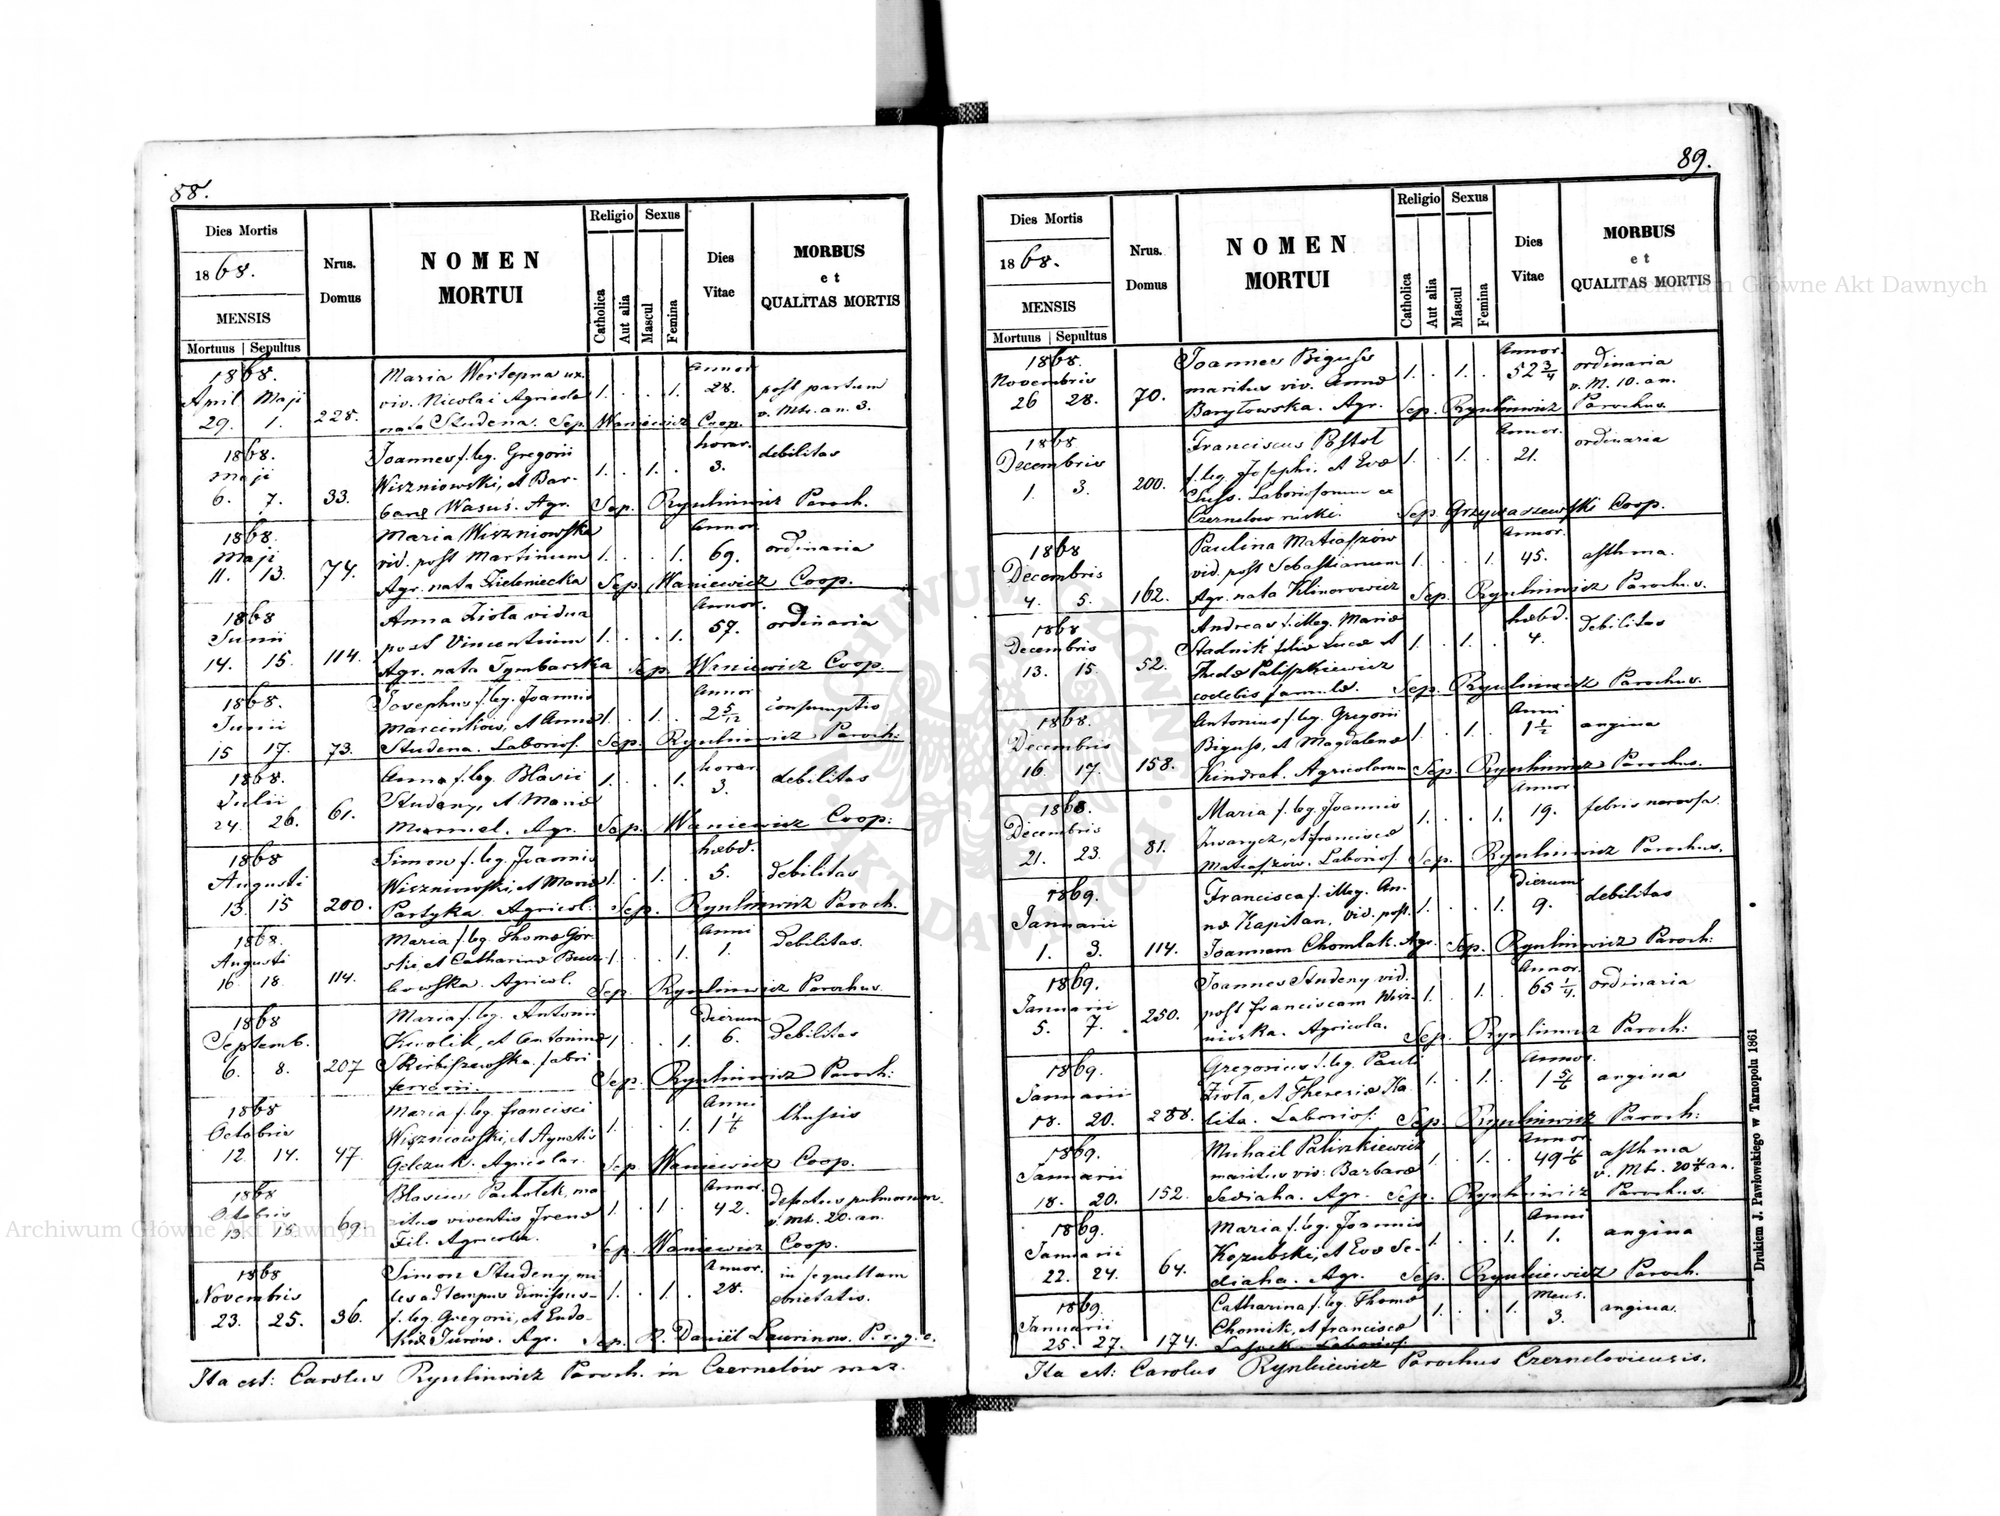 88.
Dies Mortis
1868.
MENSIS
Mortuus | Sepultus
Nrus.
Domus
NOMEN
MORTUI
Religio
Catholica
Aut alia
Sexus
Mascul
Femina
Dies
Vitae
MORBUS
et
QUALITAS MORTIS
1868. Maria Wertepna ux. Annor
April Maji viv. Nicolai Agricolae 1. . . 1. 28. post partum
29. 1. 228. nata Studena. Sep. Waniewicz Coop. v. Mtr. an. 3.
1868. Joannes f. leg. Gregorii horar.
Maji Wiszniowski, et Bar- 1. . 1. . 3. debilitas
6. 7. 33. barae Wasuś. Agr. Sep. Rynkiewicz Paroch.
1868. Maria Wiszniowska Annor.
Maji vid. post Martinum 1. . . 1. 69. ordinaria
11. 13. 74. Agr. nata Zieleniecka Sep. Waniewicz Coop.
1868 Anna Zioła vidua Annor.
Junii post Vincentium 1. . . 1. 57. ordinaria
14. 15. 114. Agr. nata Tymbarska Sep. Waniewicz Coop.
1868. Josephus f. leg. Joannis Annor
Junii Marcinkow, et Annae 1. . 1. . 2 5/12 consumptio
15 17. 73. Studena. Laborios. Sep. Rynkiewicz Paroch:
1868. Anna f. leg. Blasii horar
Julii Studeny, et Mariae 1. . . 1. 3. debilitas
24. 26. 61. Murmel. Agr. Sep. Waniewicz Coop:
1868 Simon f. leg. Joannis hebd.
Augusti Wiszniowski, et Mariae 1. . 1. . 5. debilitas
13. 15 200. Partyka Agricol. Sep. Rynkiewicz Paroch.
1868. Maria f. leg. Thomae Gór- Anni
Augusti ski, et Catharinae 1. . . 1. 1. debilitas.
16. 18. 114. kowska. Agricol. Sep. Rynkiewicz Parochus.
1868 Maria f. leg. Antonii Dierum
Septemb. Kwolik, et Antoninae 1. . . 1. 6. debilitas
6. 8. 207 Skibiszewska. fabri Sep. Rynkiewicz Paroch:
ferrarii.
1868 Maria f. leg. Francisci Anni
Octobris Wiszniowski, et Agnetis 1. . . 1. tussis
12. 14. 47. Gelczuk. Agricolar. Sep. Waniewicz Coop.
1868 Blasius Pachołek, ma- Annor.
Octobris ritus viventis Irenae 1. . 1. . 42. defectus pulmonum.
13. 15. 69. Fil. Agricola. Sep. Waniewicz Coop. v. Mt. 20. an.
1868 Simon Studeny, mi- Annor. in sequellam
Novembris les ad tempus dimissus- 1. . 1. . 28. ebrietatis.
23. 25. 36. f. leg. Gregorii, et Eudo-
kiae Jurów. Agr. Sep. P. Daniël Laurinow. P. r. g. c.
Ita est: Carolus Rynkiewicz Paroch. in Czernelów maz.
89.
Dies Mortis
1868.
MENSIS
Mortuus | Sepultus
Nrus.
Domus
NOMEN
MORTUI
Religio
Catholica
Aut alia
Sexus
Mascul
Femina
Dies
Vitae
MORBUS
et
QUALITAS MORTIS
1868. Joannes Biguss Annor. ordinaria
Novembris maritus viv. Annae 1. . 1. . 52 3/4 v. M. 10. an.
26 28. 70. Baryłowska. Agr. Sep. Rynkiewicz Parochus.
1868 Franciscus Postoł Annor. ordinaria
Decembris f. leg. Josephi, et Evae 1. . 1. . 21.
1. 3. 200. Laboriosorum ex
Czernelow ruski. Sep. Grzywaszewski Coop.
1868 Paulina Matiaszów Annor.
Decembris vid. post Sebastianum 1. . . 1. 45. asthma.
4. 5. 162. Agr. nata Klimorowicz Sep. Rynkiewicz Parochus.
1868 Andreas f. illeg. Mariae hebd.
Decembris Stadnik filiae Lucae et 1. . 1. . 4. debilitas
13. 15. 52. Theclae Paliszkiewicz
coelebis famulae. Sep. Rynkiewicz Parochus.
1868. Antonius f. leg. Gregorii Anni
Decembris Biguss, et Magdalenae 1. . 1. . 1 1/2 angina
16. 17. 158. Kindrat. Agricolarum Sep. Rynkiewicz Parochus.
1868 Maria f. leg. Joannis Annor.
Decembris Zwarycz, et Franciscae 1. . . 1. 19. febris nervosa.
21. 23. 81. Matiaszów. Laborios. Sep. Rynkiewicz Parochus.
1869. Francisca f. illeg. An- Dierum
Januarii nae Kapitan, vid. post. 1. . . 1. 9. debilitas
1. 3. 114. Joannem Chomlak. Agr. Sep. Rynkiewicz Paroch:
1869. Joannes Studeny vid. Annor.
Januarii post Franciscam Wisz- 1. . 1. . 65 1/4. ordinaria
5. 7. 250. nioska. Agricola. Sep. Rynkiewicz Paroch:
1869. Gregorius f. leg. Pauli Annor.
Januarii Zioła, et Theresiae Ka- 1. . 1. . 1 5/6 angina
18. 20. 288. lita. Laborios. Sep. Rynkiewicz Paroch:
1869. Michaël Paliszkiewicz Annor. asthma
Januarii maritus viv. Barbarae 1. . 1. . 49 1/6 v. Mt. 20 1/4 an.
18. 20. 152. Sediaha. Agr. Sep. Rynkiewicz Parochus.
1869. Maria f. leg. Joannis Anni
Januarii Kozubski, et Evae Se- 1. . . 1. 1. angina
22. 24. 64. diaha. Agr. Sep. Rynkiewicz Paroch.
1869. Catharina f. leg. Thomae Mens.
Januarii Chomik, et Franciscae 1. . . 1. 3. angina.
25. 27. 174. Laborios.
Ita est: Carolus Rynkiewicz Parochus Czerneloviensis.
Drukiem J. Pawłowskiego w Tarnopolu 1861
Archiwum Główne Akt Dawnych
Archiwum Główne Akt Dawnych
ARCHIWUM GŁÓWNE AKT DAWNYCH